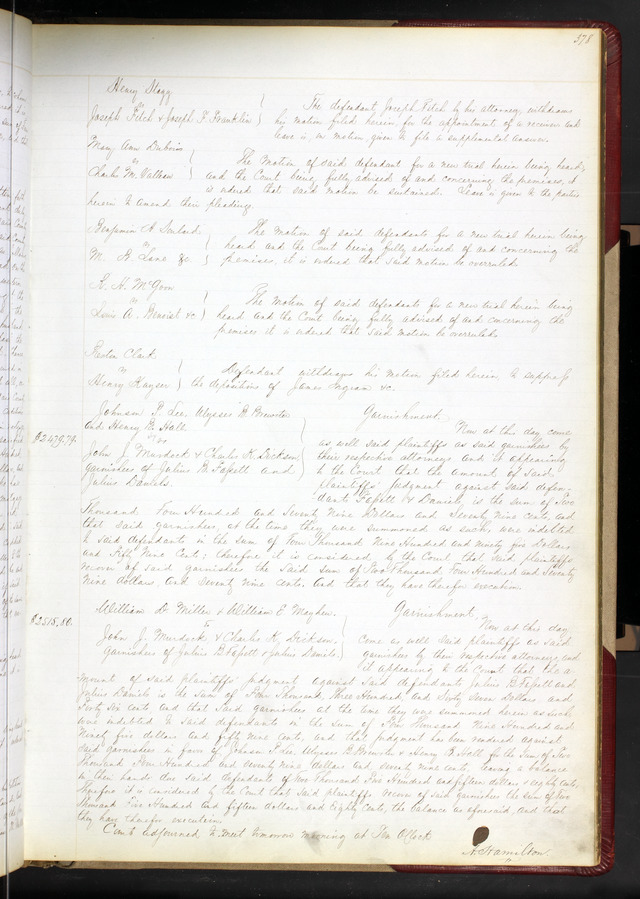 378
Henry Stagg
vs
Joseph Fitch & Joseph F. Franklin
The defendant Joseph Fitch by his attorney, withdraws
his motion filed herein for the appointment of a receiver and
leave is, on motion, given to file a supplemental answer.
Mary Ann
vs
Charles M. Valleau
The Motion of said defendant for a new trial herein being heard,
and the Court being fully advised of and concerning the premises, it
is ordered that said motion be sustained. Leave is given to the parties
herein to amend their pleadings.
Benjamin A.
vs
M. A. Lane &c.
The motion of said defendants for a new trial herein being
heard and the Court being fully advised of and concerning the
premises, it is ordered that said motion be overruled.
A. H. McGovern
vs
Louis A. Benoist &c
The motion of said defendants for a new trial herein being
heard and the Court being fully advised of and concerning the
premises it is ordered that said motion be overruled.
Clark
vs
Henry Kayser
Defendant withdraws his motion filed herein to suppress
the depositions of James Ingram &c.
Johnson P. Lee, Ulysses B. Brewster
and Henry B. Hall
vs
$2479.79.
John J. Murdock & Charles K. Dickson,
Garnishees of Julius B. Fassett and
Julius Daniels.
Garnishment.
Now at this day come
as well said plaintiffs as said garnishees by
their respective attorneys and it appearing
to the Court that the amount of said
plaintiffs' judgment against said defen-
dants Fassett & Daniels, is the sum of Two
Thousand Four Hundred and Seventy Nine Dollars and Seventy nine cents, and
that said garnishees, at the time they were summoned as such, were indebted
to said defendants in the sum of Four Thousand Nine Hundred and ninety five Dollars
and Fifty Nine Cents; therefore it is considered by the Court that said plaintiffs
recover of said garnishees the said sum of Two Thousand Four Hundred and Seventy
nine dollars and seventy nine cents, and that they have therefor execution.
$2515.80.
William D. Miller & William E. Mayhew.
vs
John J. Murdock & Charles K. Dickson,
Garnishees of Julius B. Fassett & Julius Daniels.
Garnishment.
Now at this day
come as well said plaintiffs as said
garnishees by their respective attorneys and
it appearing to the Court that the a-
mount of said plaintiffs' judgment against said defendants Julius B. Fassett and
Julius Daniels is the sum of Thousand, Three Hundred and Sixty Seven Dollars and
Forty Six cents and that said garnishees at the time they were summoned herein as such
was indebted to said defendants in the sum of Four Thousand Nine Hundred and
Ninety five dollars and fifty nine cents, and that judgment has been rendered against
said garnishees in favor of Johnson P. Lee, Ulysses B. Brewster & Henry B. Hall for the sum of Two
Thousand Four Hundred and seventy nine dollars and seventy nine cents, leaving a balance
in their hands due said defendants of two Thousand Five Hundred and fifteen dollars & eighty cents,
Therefore it is considered by the Court that said plaintiffs recover of said garnishees the sum of two
Thousand Five Hundred and fifteen dollars and Eighty Cents, the balance as aforesaid, and that
they have therefor execution.
Court adjourned to meet tomorrow morning at Ten O'Clock
A. Hamilton.